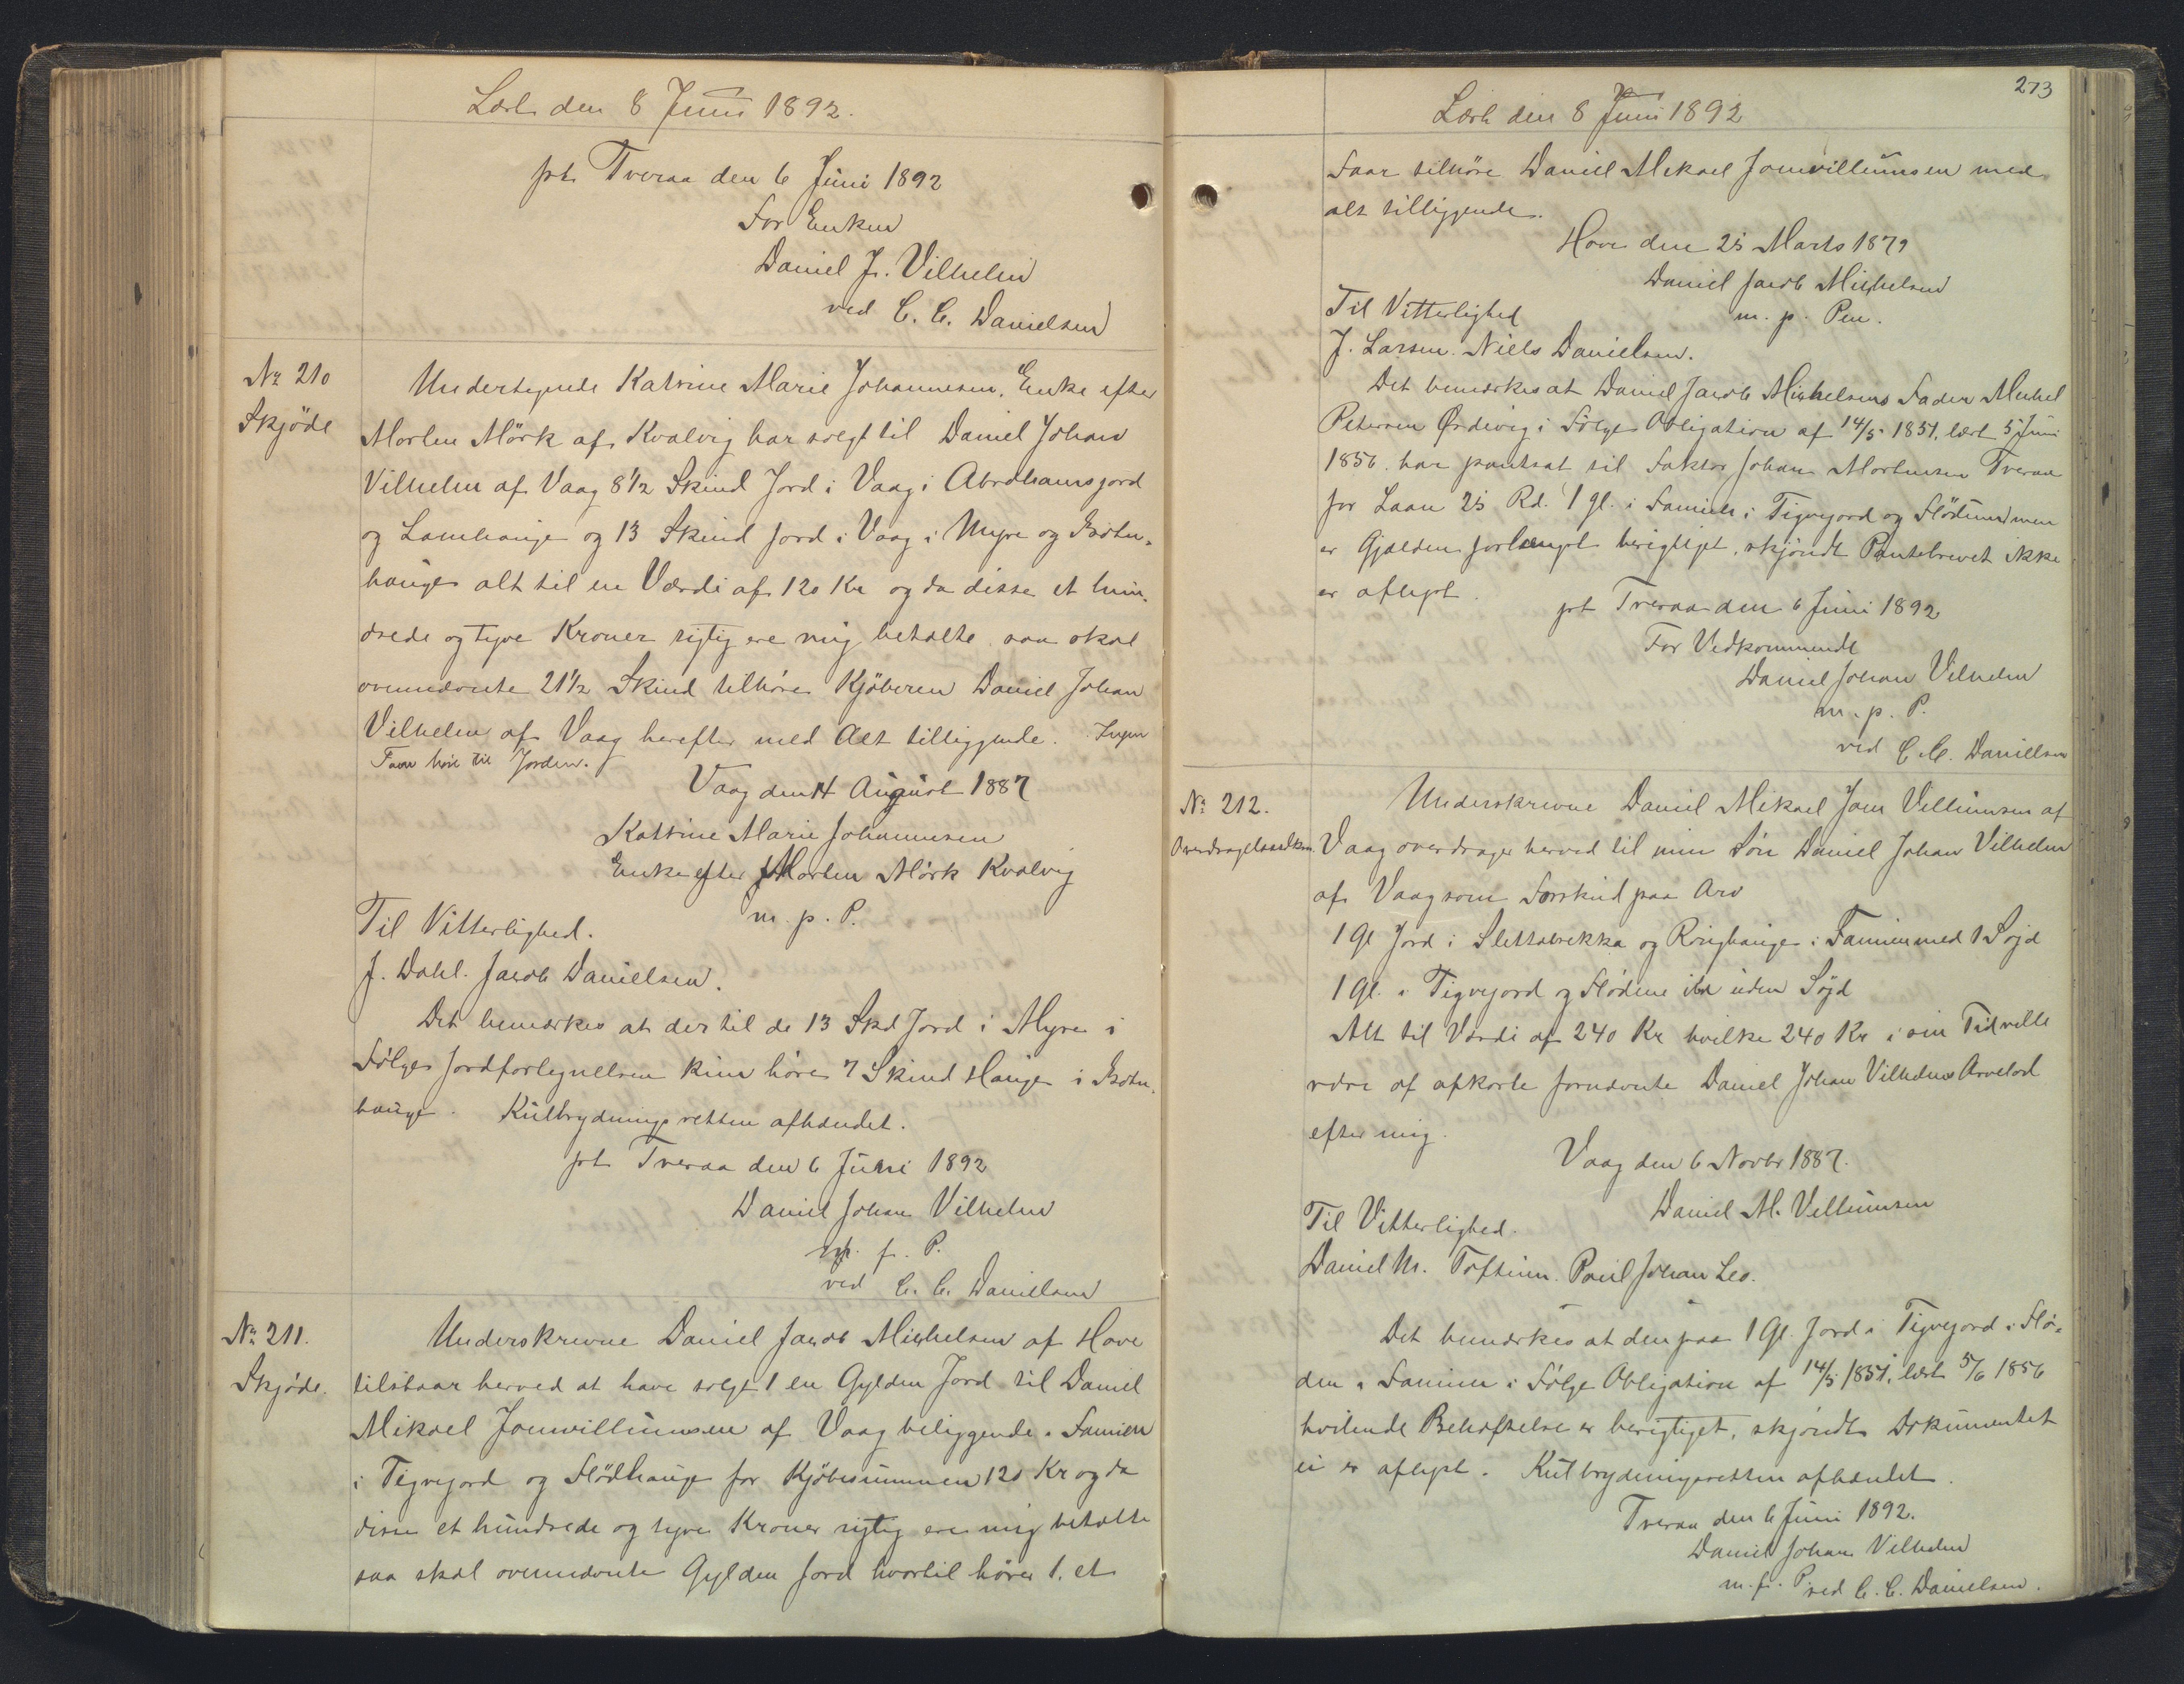 Læst den 8 Juni 1892.
pt. Tveraa den 6 Juni 1892
For Enken
Daniel J. Vilhelm
ved C. C. Danielsen
No 210
Skjöde
Undertegnede Katrine Marie Johannesen, Enke efter
Morten Mörk af Kvalvig har solgt til Daniel Johan
Vilhelm af Vaag 8 1/2 Skind Jord i Vaag i Abrahamsjord
og Lamhauge og 13 Skind Jord i Vaag i Myre og Botn-
hauge alt til en Værdi af 120 Kr og da disse et hun-
drede og tyve Kroner rigtig ere mig betalte saa skal
ovennævnte 21 1/2 Skind tilhøre Kjöberen Daniel Johan
Vilhelm af Vaag herefter med Alt tilliggende. Ingen
Faar höre til Jorden.
Vaag den 14 August 1887
Katrine Marie Johannesen
Enke efter Morten Mörk Kvalvig
m. p. P.
Til Vitterlighed.
J. Dahl. Jacob Danielsen.
Det bemærkes at der til de 13 Skd Jord i Myre i
Fölge Jordfortegnelsen kun hörer 7 Skind Hauge i Botn-
hauge. Kulbrydningsretten afhændet.
pt. Tveraa den 6 Juni 1892
Daniel Johan Vilhelm
m. p. P.
ved C. C. Danielsen
No 211.
Skjöde.
Underskrevne Daniel Jacob Michelsen af Hove
tilstaar herved at have solgt 1 en Gylden Jord til Daniel
Mikael Joenvilliumsen af Vaag beliggende i Famien
i Tigvejord og Flödhauge for Kjöbesummen 120 Kr og da
disse et hundrede og tyve Kroner rigtig ere mig betalte
saa skal ovennævnte Gylden Jord hvortil hörer 1. et
273
Læst den 8 Juni 1892
Faar tilhöre Daniel Mikael Joenvilliumsen med
alt tilliggende.
Hove den 25 Marts 1879
Daniel Jacob Michelsen
m. p. Pen.
Til Vitterlighed
J. Larsen. Niels Danielsen.
Det bemærkes at Daniel Jacob Michelsens Fader Michel
Petersen Ørdevig i Fölge Obligation af 14/5 1851, læst 5 Juni
1856 har pantsat til Faktor Johan Mortensen Tveraa
for Laan 25 Rd. 1 gl. i Famien i Tigvejord og Flödene men
er Gjælden forlængst berigtiget, skjöndt Pantebrevet ikke
er aflyst.
pt Tveraa den 6 Juni 1892
For Vedkommende
Daniel Johan Vilhelm
m. p. P.
ved C. C. Danielsen
No 212.
Underskrevne Daniel Mikael Joen Villiumsen af
Vaag overdrager herved til min Sön Daniel Johan Vilhelm
af Vaag som Forskud paa Arv
1 Gl Jord i Slettabrekka og Ringhauge i Famien med 1 Söjd
1 Gl. i Tigvejord og Flödene ibd uden Söjd
Alt til Værdi af 240 Kr hvilke 240 Kr i sin Tid ville
være at afkorte fornævnte Daniel Johan Vilhelms Arvelod
efter mig.
Vaag den 6 Novbr 1887.
Daniel M. Villiumsen
Til Vitterlighed.
Daniel M. Toftum. Poul Johan Leo.
Det bemærkes at den paa 1 Gl. Jord i Tigvejord i Flö-
den i Famien i Fölge Obligation af 14/5 1851, læst 5/6 1856
hvilende Behæftelse er berigtiget, skjöndt Dokumentet
ei er aflyst. Kulbrydningsretten afhændet.
Tveraa den 6 Juni 1892.
Daniel Johan Vilhelm
m. p. P. ved C. C. Danielsen.